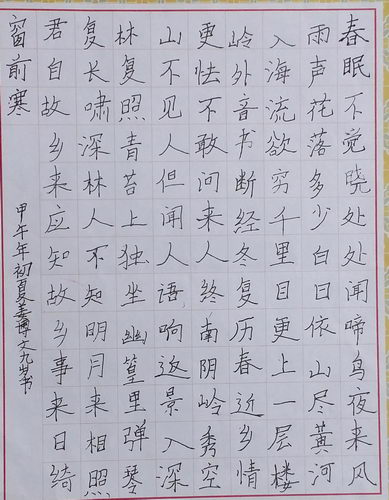 春眠不觉晓处处闻啼鸟夜来风
雨声花落多少白日依山尽黄河
入海流欲穷千里目更上一层楼
岭外音书断经冬复历春近乡情
更怯不敢问来人终南阴岭秀空
山不见人但闻人语响返景入深
林复照青苔上独坐幽篁里弹琴
复长啸深林人不知明月来相照
君自故乡来应知故乡事来日绮
窗前寒
甲午年初夏姜博文九岁书